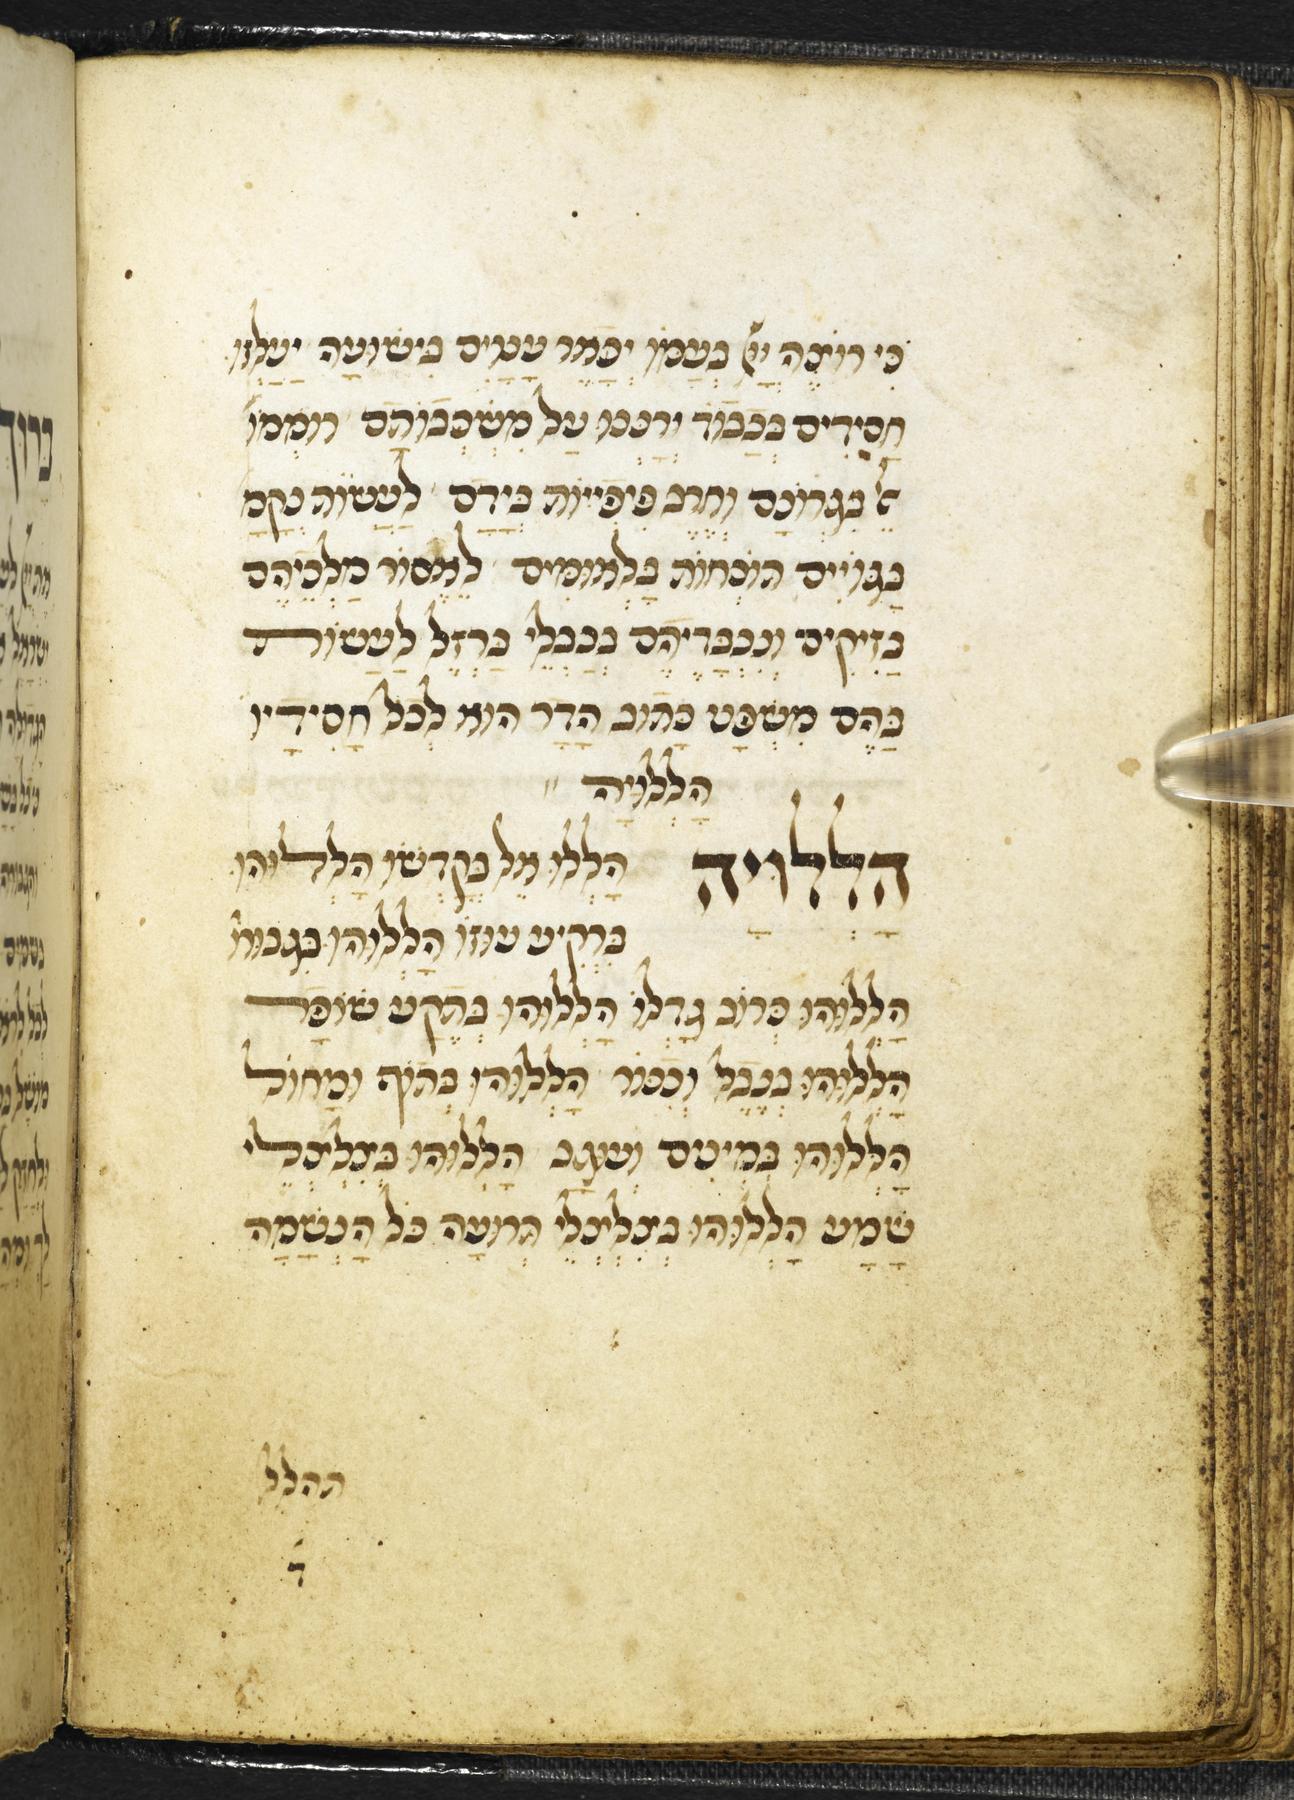 כי רוצה יי בעמו יפאר ענוים בישועה יעלזו
חסידים בכבוד ירננו על משכבותם רוממו
אל בגרונם וחרב פיפייות בידם לעשות נקמ
בגויים תוכחות בלאומים לאסור מלכיהם
בזיקים ונכבדיהם בכבלי ברזל לעשות
בהם משפט כתוב הדר הוא לכל חסידיו
הללויה
הללויה הללו אל בקדשו הללוהו
ברקיע עוזו הללוהו בגבורו
הללוהו כרוב גדלו הללוהו בתקע שופר
הללוהו בנבל וכנור הללוהו בתוף ומחול
הללוהו במינים ועוגב הללוהו בצלצלי
שמע הללוהו בצלצלי תרועה כל הנשמה
תהלל
ד
ברוך